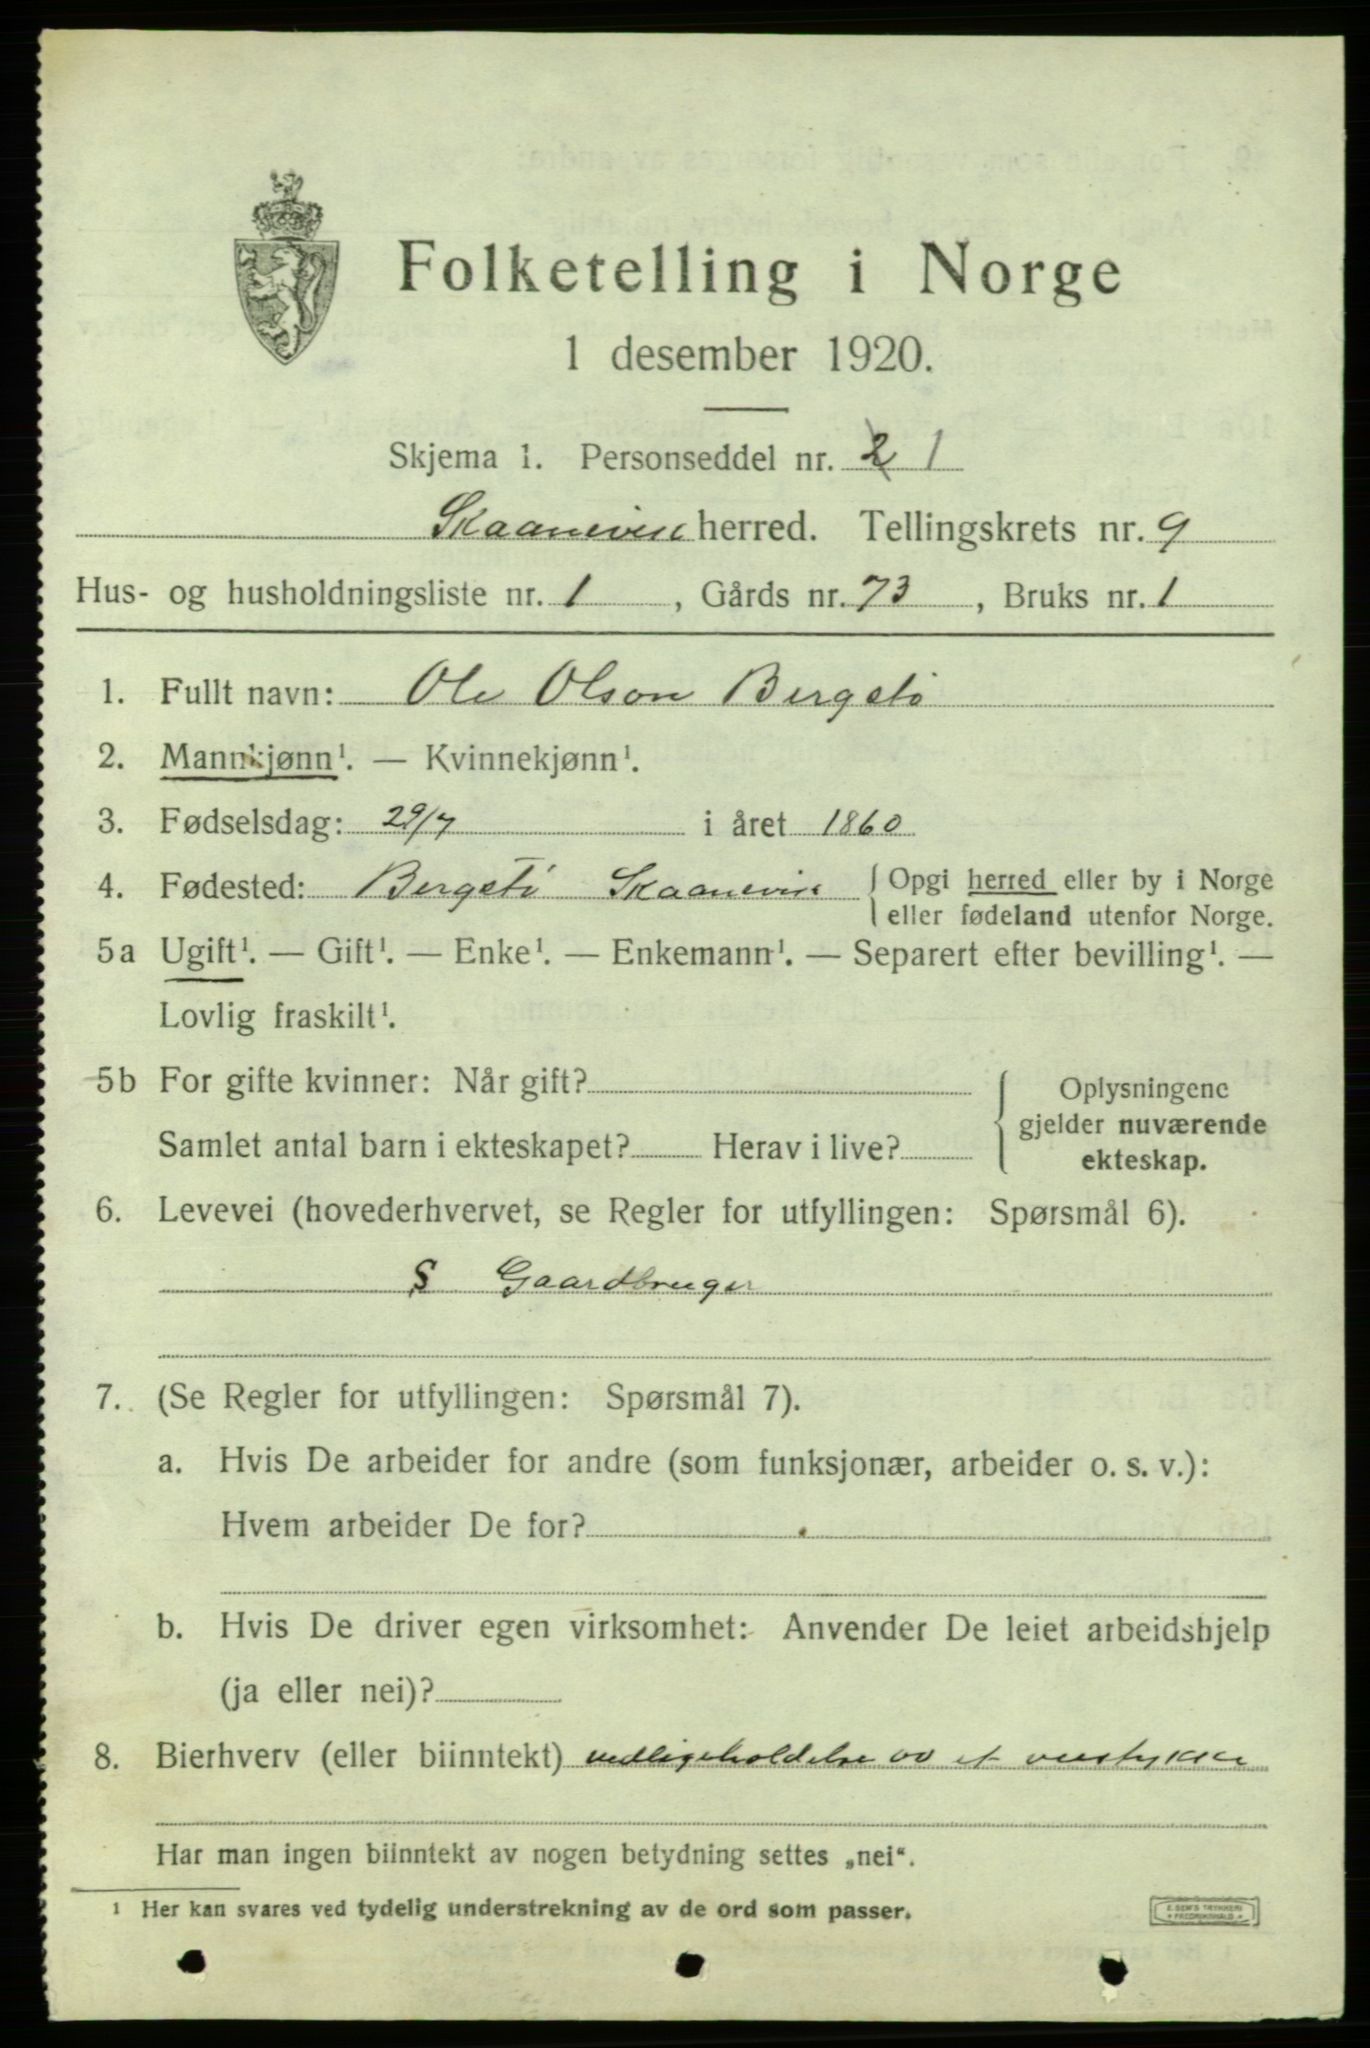 Folketelling i Norge
1 desember 1920.
Skjema 1. Personseddel nr. 2 1
Skaanevik herred. Tellingskrets nr. 9
Hus- og husholdningsliste nr. 1, Gårds nr. 73, Bruks nr. 1
1. Fullt navn: Ole Olson Bergstö
2. Mannkjønn¹. — Kvinnekjønn¹.
3. Fødselsdag: 29/7 i året 1860
4. Fødested: Bergstö Skaanevik { Opgi herred eller by i Norge
eller fødeland utenfor Norge.
5a Ugift¹. — Gift¹. — Enke¹. — Enkemann¹. — Separert efter bevilling¹. —
Lovlig fraskilt¹.
5b For gifte kvinner: Når gift? { Oplysningene
gjelder nuværende
Samlet antal barn i ekteskapet? Herav i live?
ekteskap.
6. Levevei (hovederhvervet, se Regler for utfyllingen: Spørsmål 6).
S Gaardbruger
7. (Se Regler for utfyllingen: Spørsmål 7).
a. Hvis De arbeider for andre (som funksjonær, arbeider o. s. v.):
Hvem arbeider De for?
b. Hvis De driver egen virksomhet: Anvender De leiet arbeidshjelp
(ja eller nei)?
8. Bierhverv (eller biinntekt) vedligeholdelse av et veistykke
Har man ingen biinntekt av nogen betydning settes „nei“.
¹ Her kan svares ved tydelig understrekning av de ord som passer.
E. SEM'S TRYKKERI
FREDRIKSHALD